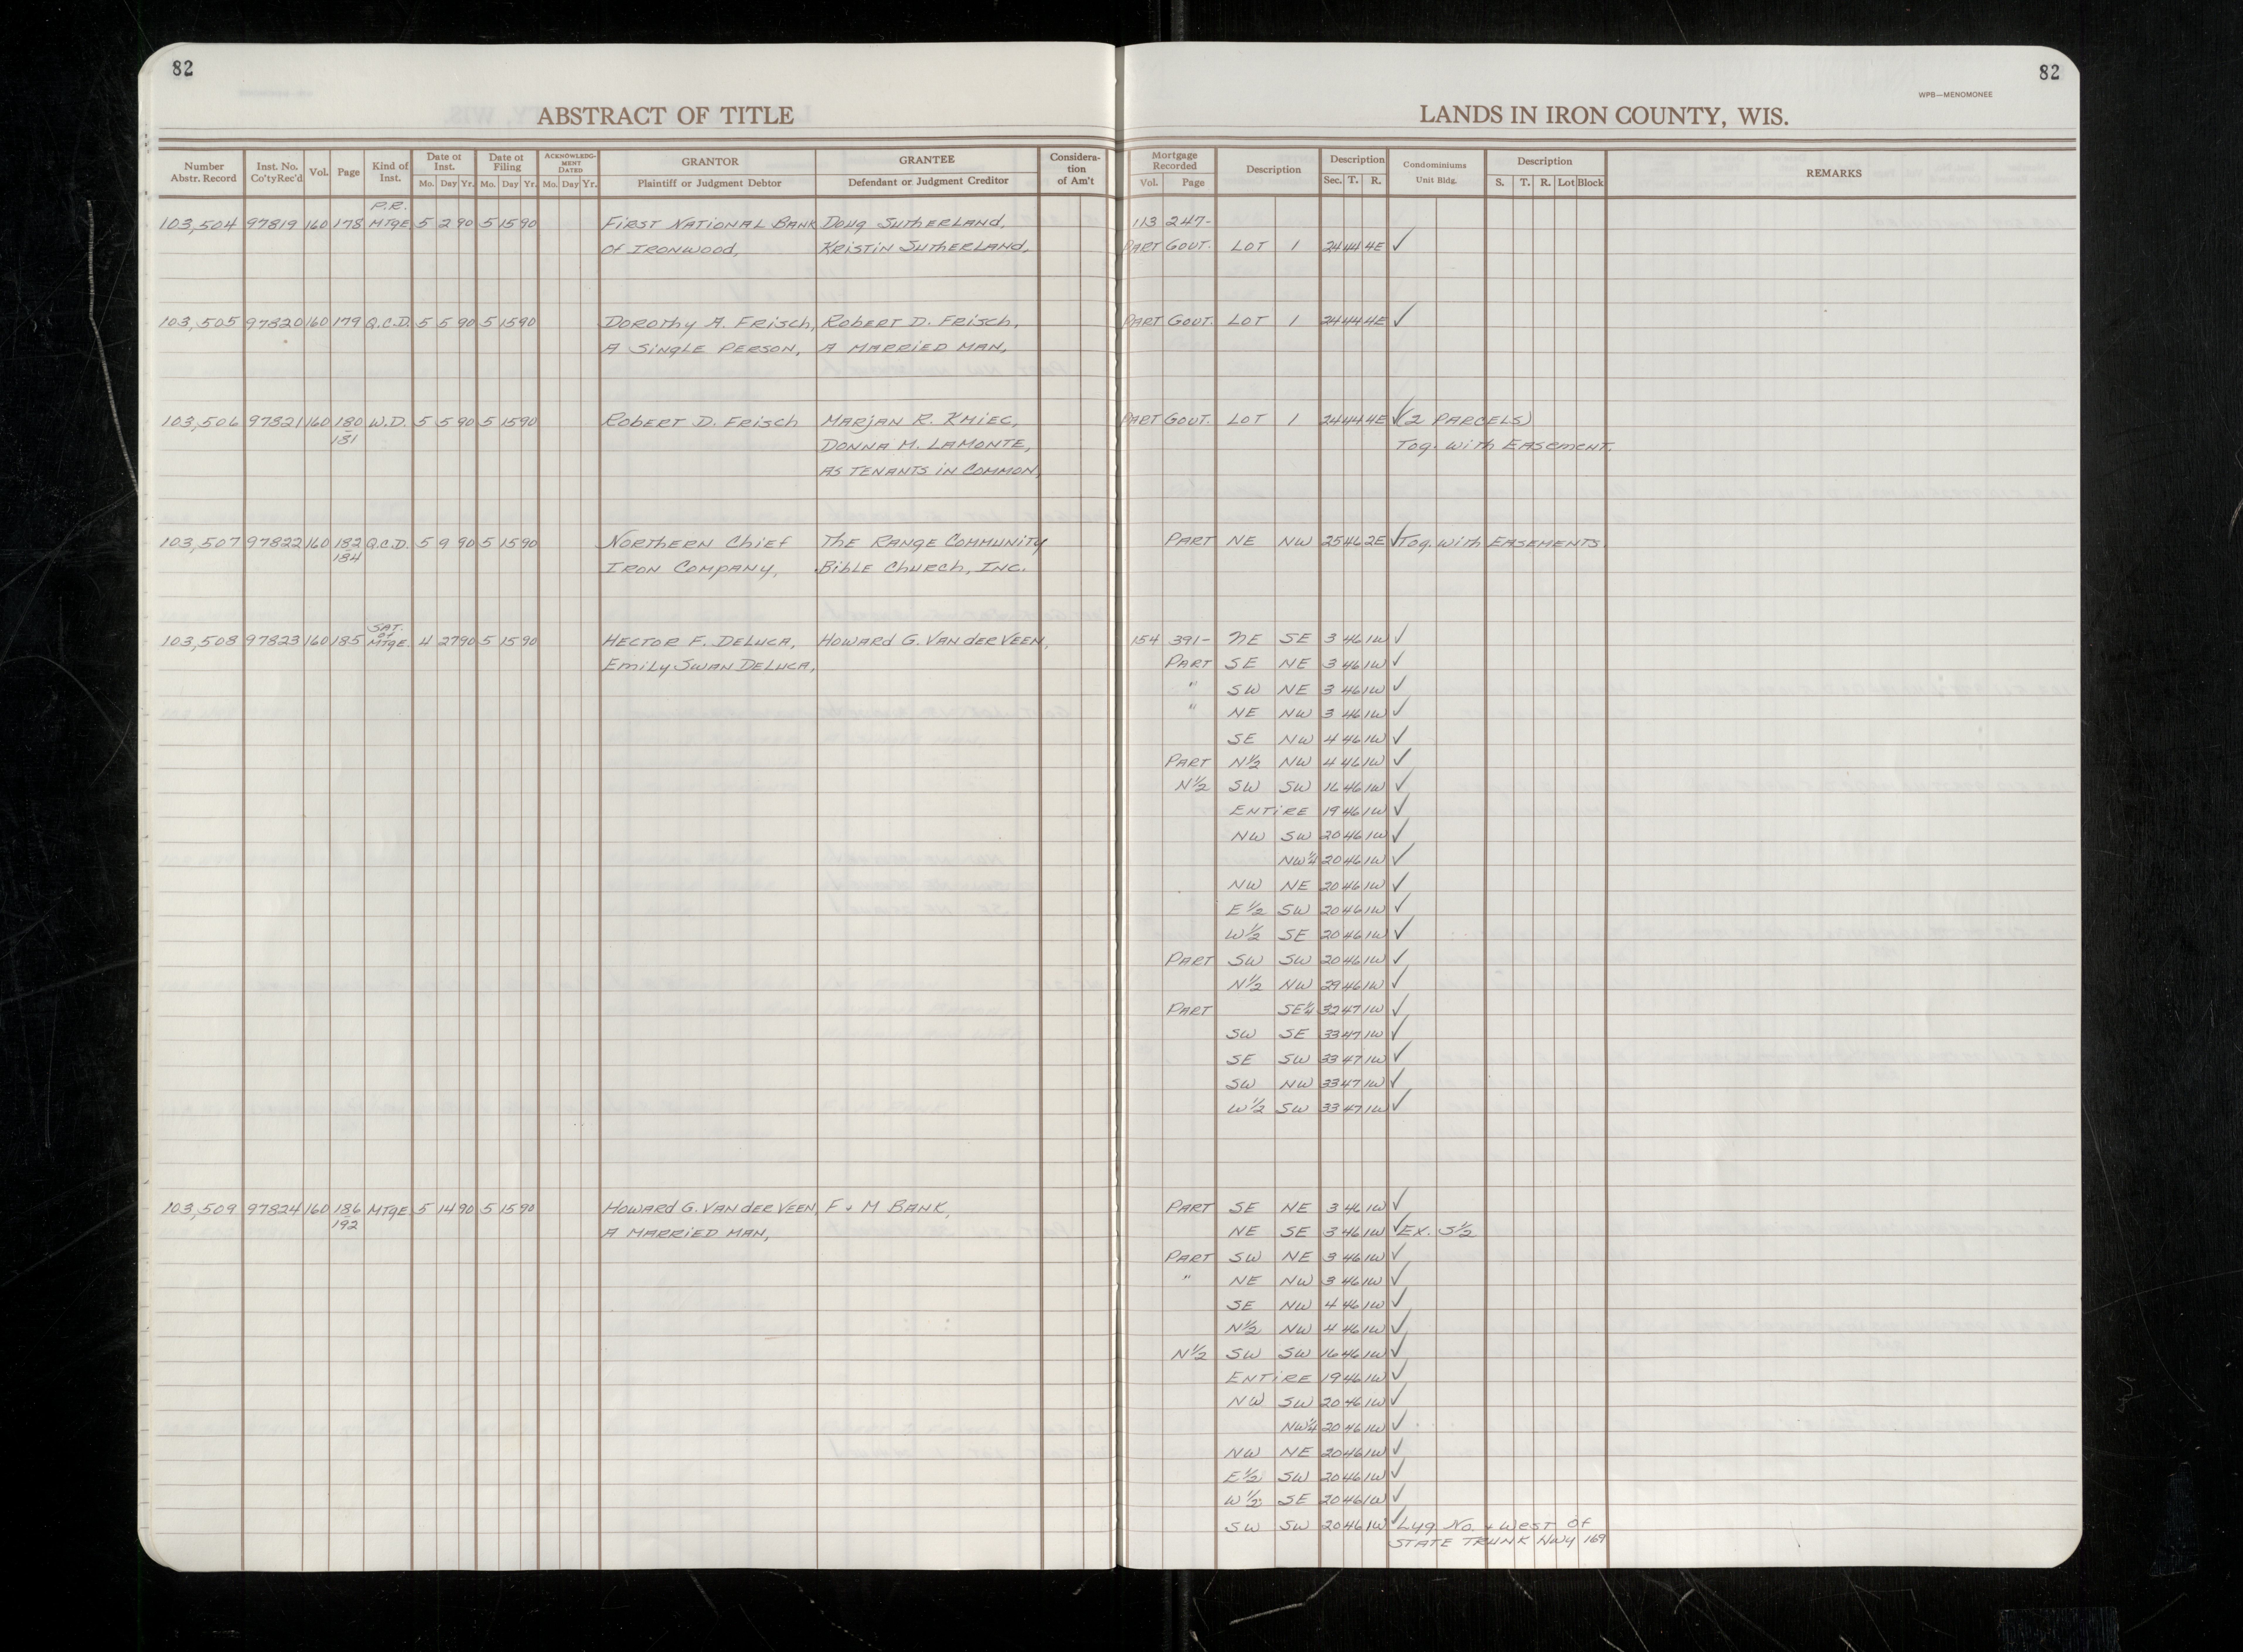 82
82
WPB—MENOMONEE
ABSTRACT OF TITLE
LANDS IN IRON COUNTY, WIS.
Number Abstr. Record | Inst. No. Co'ty Rec'd | Vol. | Page | Kind of Inst. | Date of Inst. Mo. Day Yr. | Date of Filing Mo. Day Yr. | ACKNOWLEDGMENT DATED Mo. Day Yr. | GRANTOR Plaintiff or Judgment Debtor | GRANTEE Defendant or Judgment Creditor | Consideration of Am't | Mortgage Recorded Vol. Page | Description | Description Sec. T. R. | Condominiums Unit Bldg. | Description S. T. R. Lot Block | REMARKS
P.R.
103,504 97819 160 178 MTGE 5 2 90 5 15 90 First National Bank Doug Sutherland, 113 247-
of Ironwood, Kristin Sutherland, PART GOVT. LOT 1 24 44 4E ✓
103,505 97820 160 179 Q.C.D. 5 5 90 5 15 90 Dorothy A. Frisch, Robert D. Frisch, PART GOVT. LOT 1 24 44 4E ✓
A Single Person, A Married Man,
103,506 97821 160 180 W.D. 5 5 90 5 15 90 Robert D. Frisch Marjan R. Kmiec, PART GOVT. LOT 1 24 44 4E ✓ (2 PARCELS)
181 Donna M. LaMonte, Tog. with Easement.
as Tenants in Common,
103,507 97822 160 182 Q.C.D. 5 9 90 5 15 90 Northern Chief The Range Community PART NE NW 25 46 2E ✓ Tog. with Easements.
184 Iron Company, Bible Church, Inc.
SAT. of
103,508 97823 160 185 MTGE. 4 27 90 5 15 90 Hector F. DeLuca, Howard G. Van der Veen, 154 391- NE SE 3 46 1W ✓
Emily Swan DeLuca, PART SE NE 3 46 1W ✓
" SW NE 3 46 1W ✓
" NE NW 3 46 1W ✓
SE NW 4 46 1W ✓
PART N½ NW 4 46 1W ✓
N½ SW SW 16 46 1W ✓
ENTIRE 19 46 1W ✓
NW SW 20 46 1W ✓
NW¼ 20 46 1W ✓
NW NE 20 46 1W ✓
E½ SW 20 46 1W ✓
W½ SE 20 46 1W ✓
PART SW SW 20 46 1W ✓
N½ NW 29 46 1W ✓
PART SE¼ 32 47 1W ✓
SW SE 33 47 1W ✓
SE SW 33 47 1W ✓
SW NW 33 47 1W ✓
W½ SW 33 47 1W ✓
103,509 97824 160 186 MTGE. 5 14 90 5 15 90 Howard G. Van der Veen, F + M Bank, PART SE NE 3 46 1W ✓
192 A Married Man, NE SE 3 46 1W ✓ Ex. S½
PART SW NE 3 46 1W ✓
" NE NW 3 46 1W ✓
SE NW 4 46 1W ✓
N½ NW 4 46 1W ✓
N½ SW SW 16 46 1W ✓
ENTIRE 19 46 1W ✓
NW SW 20 46 1W ✓
NW¼ 20 46 1W ✓
NW NE 20 46 1W ✓
E½ SW 20 46 1W ✓
W½ SE 20 46 1W ✓
SW SW 20 46 1W ✓ Lyg No. + West of
State Trunk Hwy 169